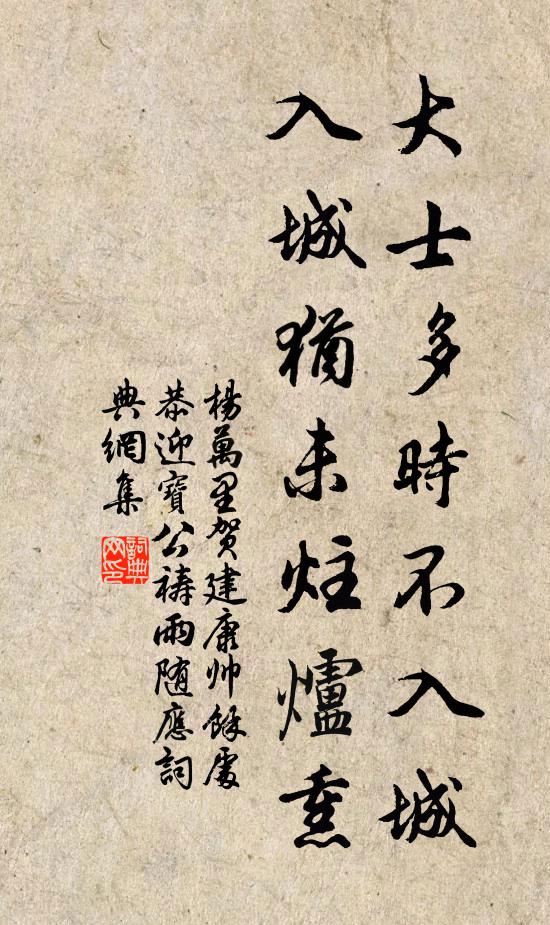 大士多時不入城
入城猶未炷爐熏
楊萬里賀建康帥餘處
恭迎寶公禱雨随應詞
典網集
詞典网印